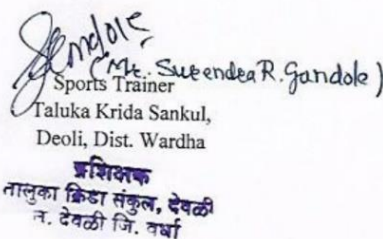 (Mr. Surendra R. Gandole)
Sports Trainer
Taluka Krida Sankul,
Deoli, Dist. Wardha
प्रशिक्षक
तालुका क्रिडा संकुल, देवळी
त. देवळी जि. वर्धा